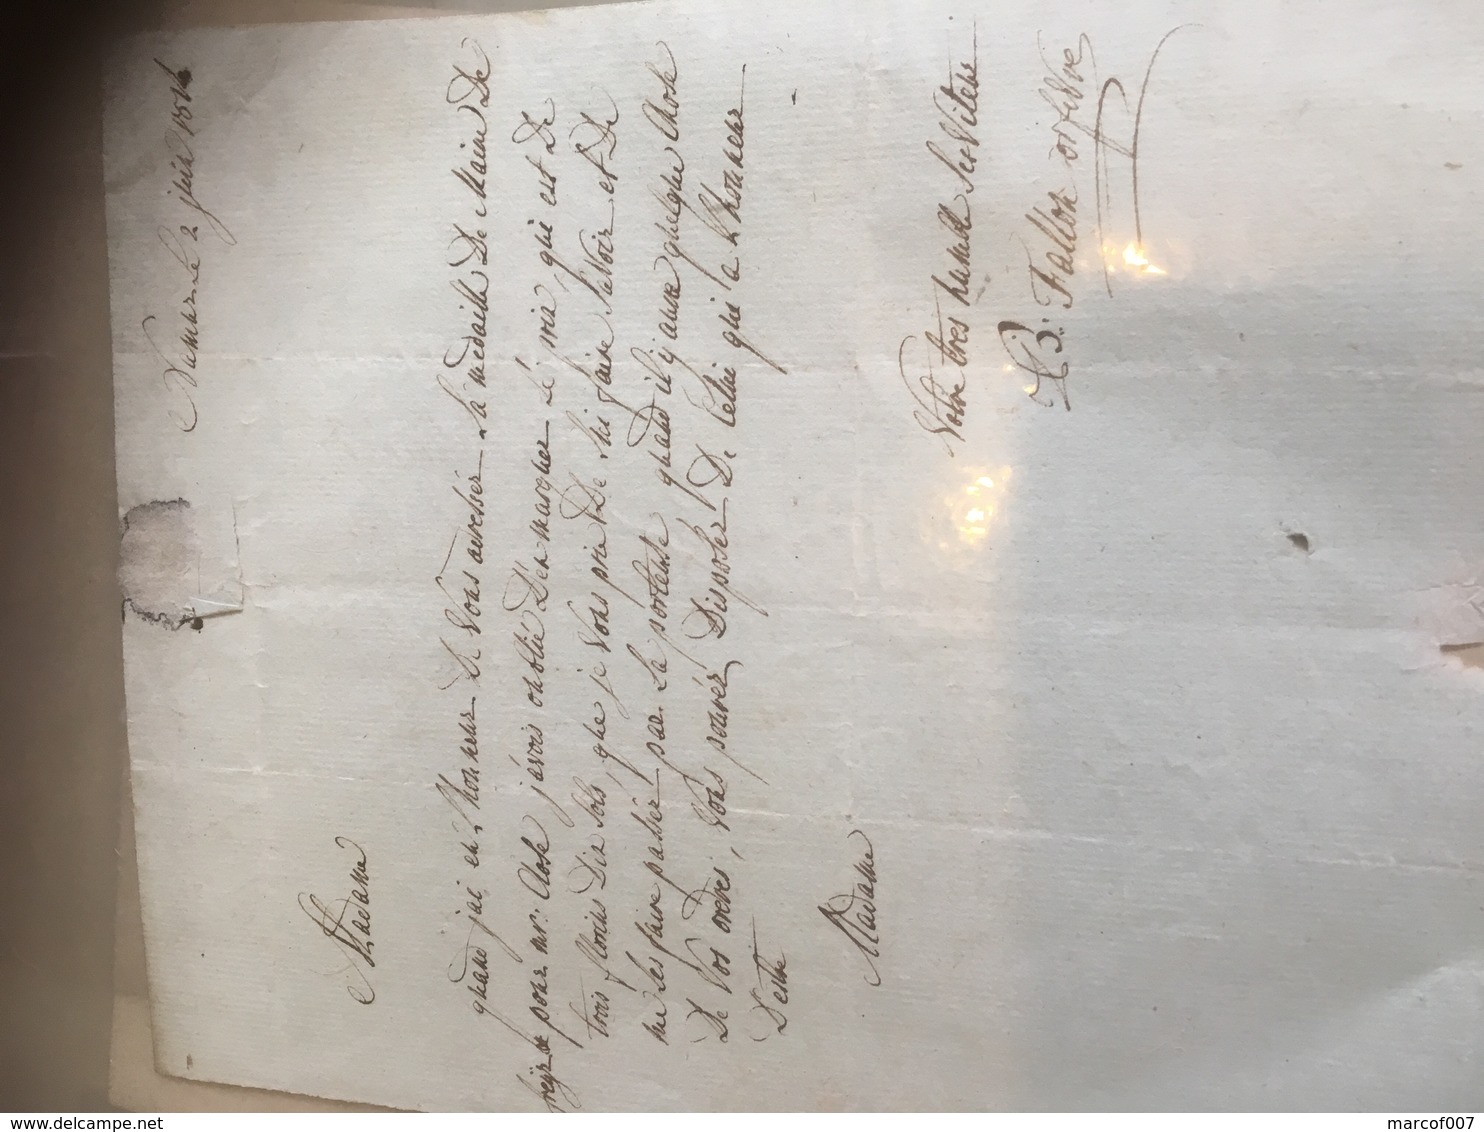 Namur Le 2 juin
Madame
quand jai eu Lhonneur De Vous adresser La médaille De Maire De
pour mr: Close j'avois oublié D'en marquer Le prix qui est De
trois florins Dix sols, que je Vous prie De Lui faire savoir et De
me Les faire passer par La porteuse quand il y aura quelque Chose
De Vos ordres, Vous pouvez Disposer De Celui qui a L'honneur
D'etre
Madame
Votre tres humble serViteur
B: Fallon orfevre
marcof007
delcampe.net